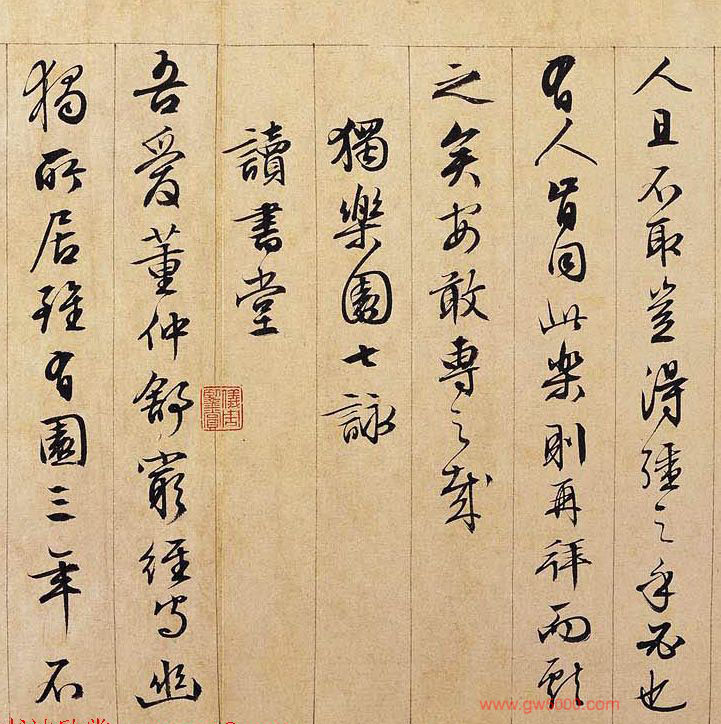 人且不取豈得强之乎必也
有人肯同此樂則再拜而獻
之矣安敢專之哉
獨樂園七詠
讀書堂
吾愛董仲舒窮經守幽
獨所居雖有園三年不